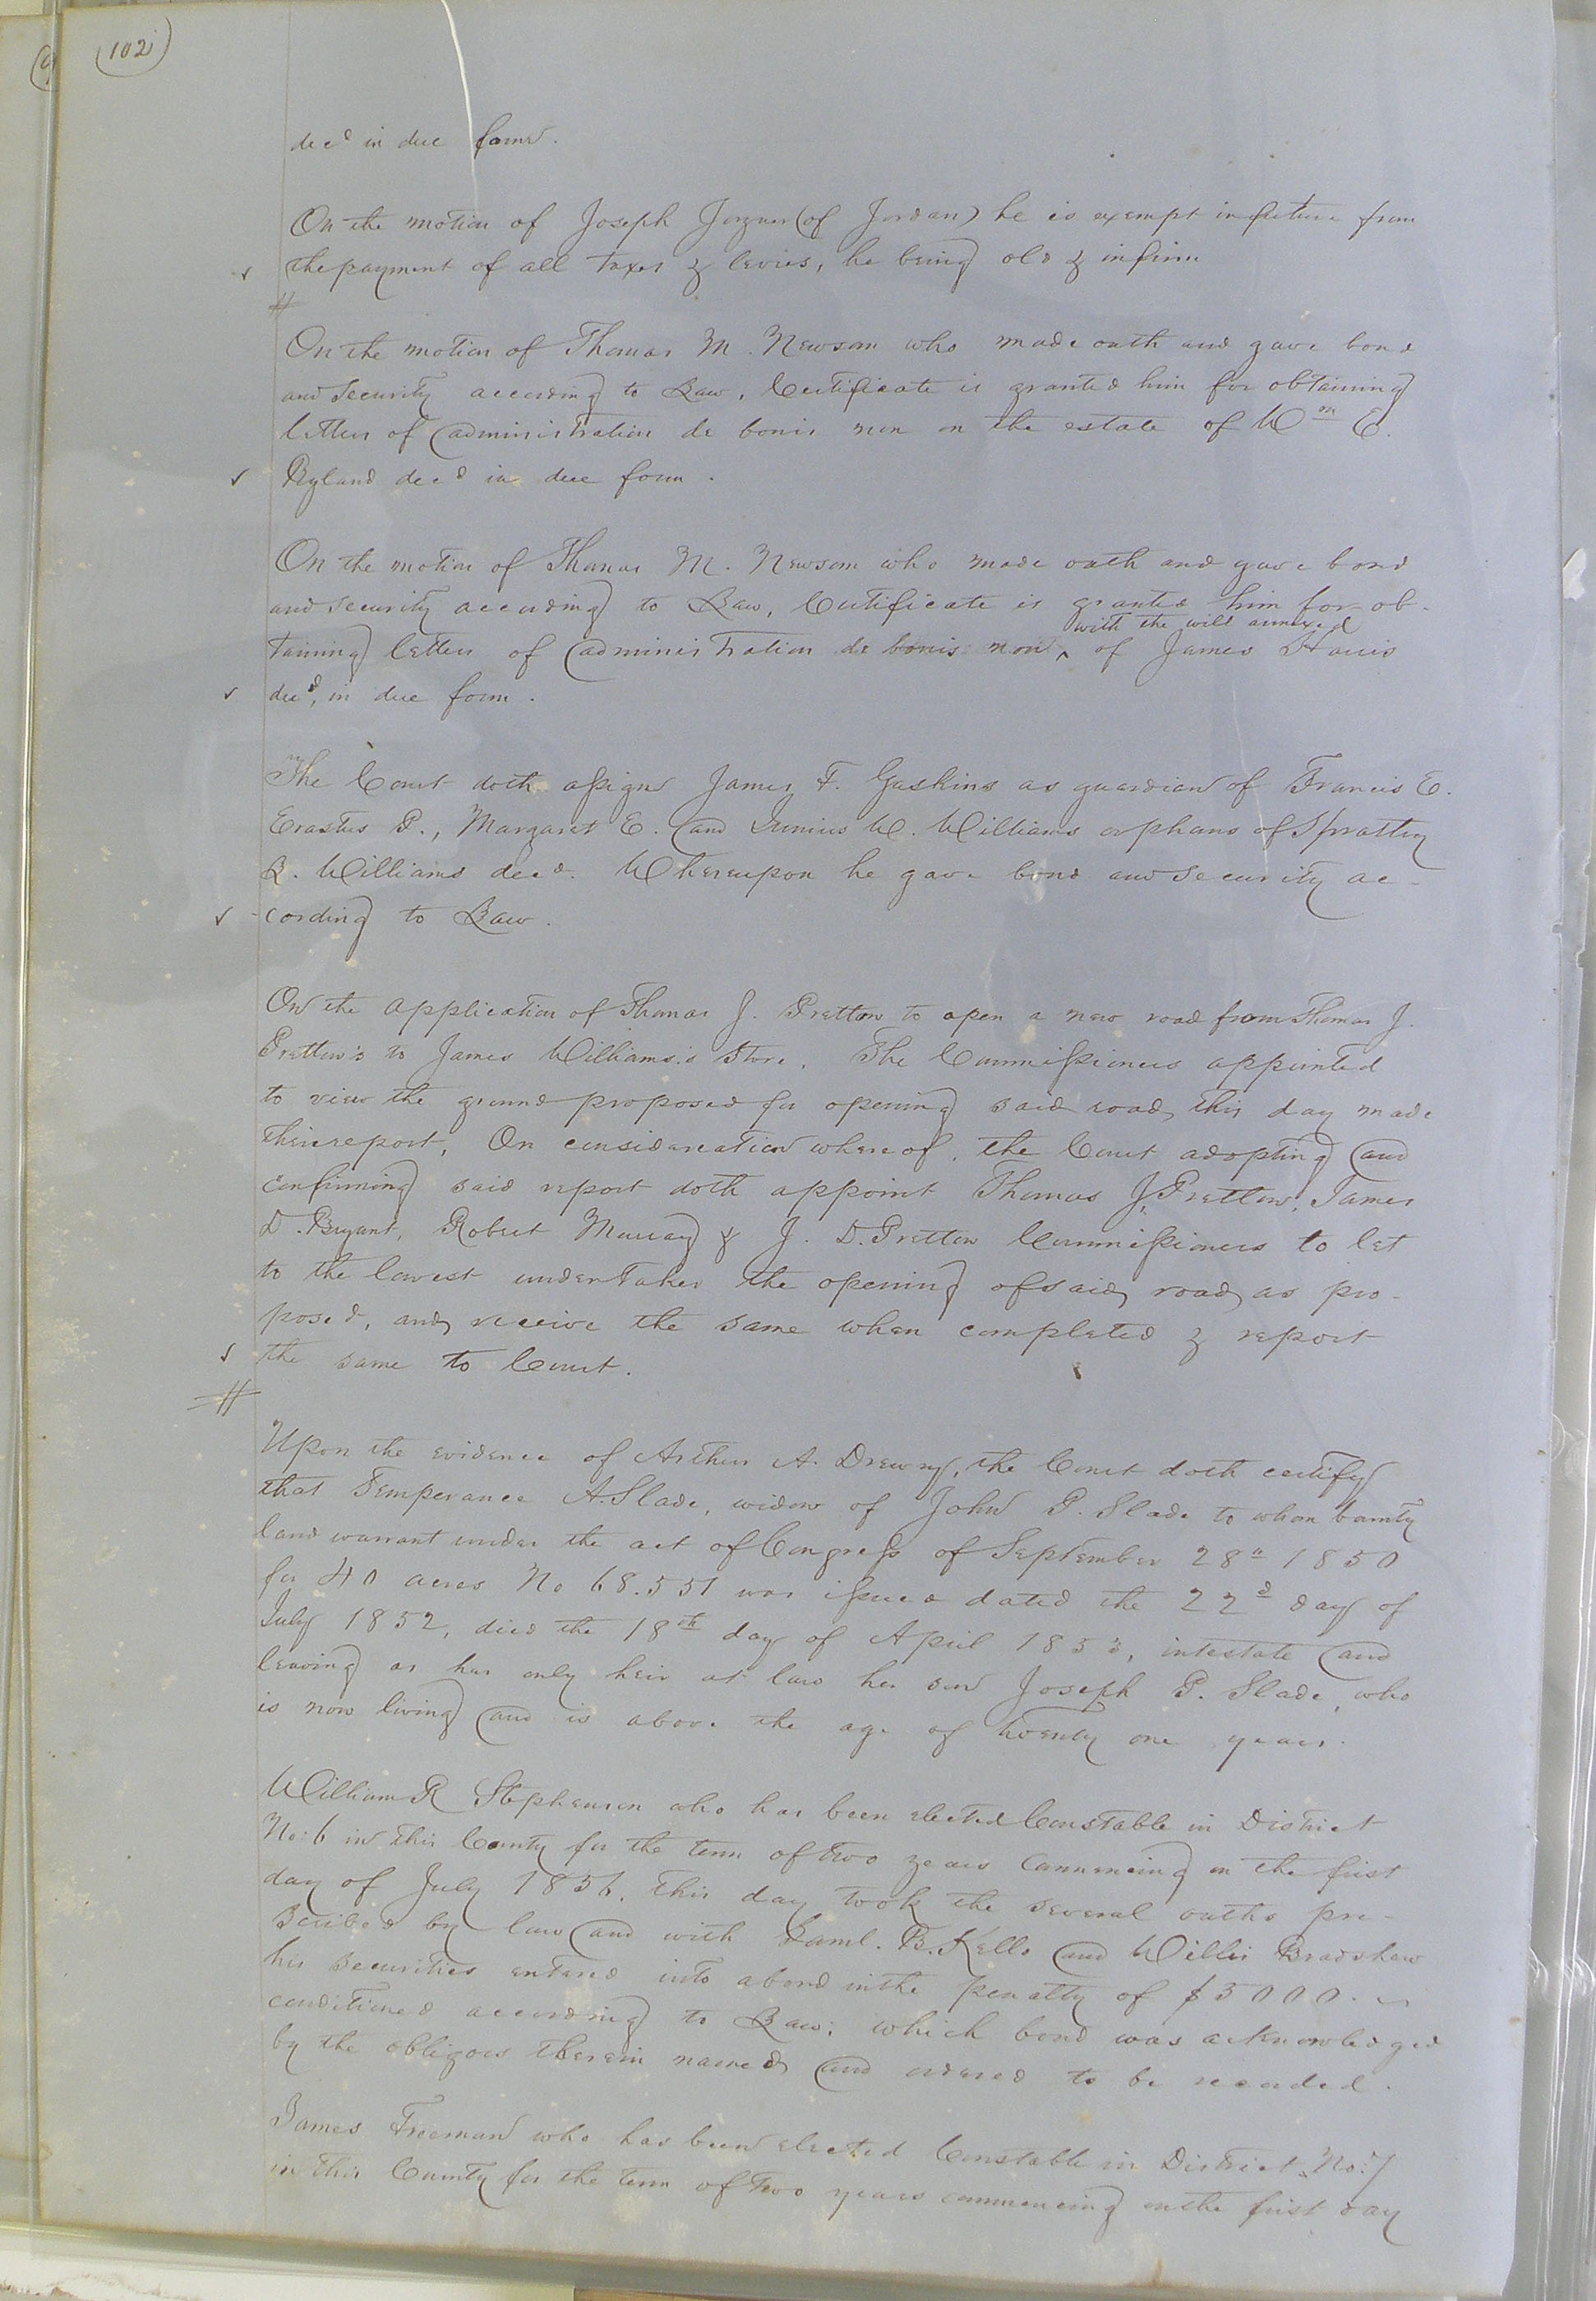 (102)
decd in due form.
On the motion of Joseph Joyner (of Jordan) he is exempt in future from
the payment of all taxes & levies, he being old & infirm
On the motion of Thomas M. Newsom who made oath and gave bond
and security according to Law, Certificate is granted him for obtaining
letters of administration de bonis non on the estate of Wm E.
Ryland decd in due form.
On the motion of Thomas M. Newsom who made oath and gave bond
and security according to Law, Certificate is granted him for ob-
with the will annexed
taining letters of administration de bonis non ^ of James Harris
decd, in due form.
The Court doth assign James F. Gaskins as guardian of Francis E.
Erastus P., Margaret E. and Junius W. Williams orphans of Spratley
B. Williams decd. Whereupon he gave bond and security ac-
-cording to Law.
On the application of Thomas J. Pretlow to open a new road from Thomas J.
Pretlow's to James Williams's Store. The Commissioners appointed
to view the ground proposed for opening said road, this day made
their report, On consideration whereof, the Court adopting and
confirming said report doth appoint Thomas J. Pretlow, James
D. Bryant, Robert Murray & J. D. Pretlow Commissioners to let
to the lowest undertaker the opening of said road, as pro-
posed, and receive the same when completed & report
the same to Court.
Upon the evidence of Arthur A. Drewry, the Court doth certify
that Temperance A. Slade, widow of John P. Slade to whom bounty
land warrant under the act of Congress of September 28th 1850
for 40 acres No 68.551 was issued dated the 22d day of
July 1852, died the 18th day of April 1853, intestate and
leaving as her only heir at law her son Joseph P. Slade, who
is now living and is above the age of twenty one years.
William R Stephenson who has been elected Constable in District
No: 6 in this County for the term of two years commencing on the first
day of July 1856, this day took the several oaths pre-
scribed by law and with Saml. B. Kello and Willis Bradshaw
his securities entered into a bond in the penalty of $5000.
conditioned according to Law; which bond was acknowledged
by the obligors therein named and ordered to be recorded.
James Freeman who has been elected Constable in District No: 7
in this County for the term of two years commencing on the first day